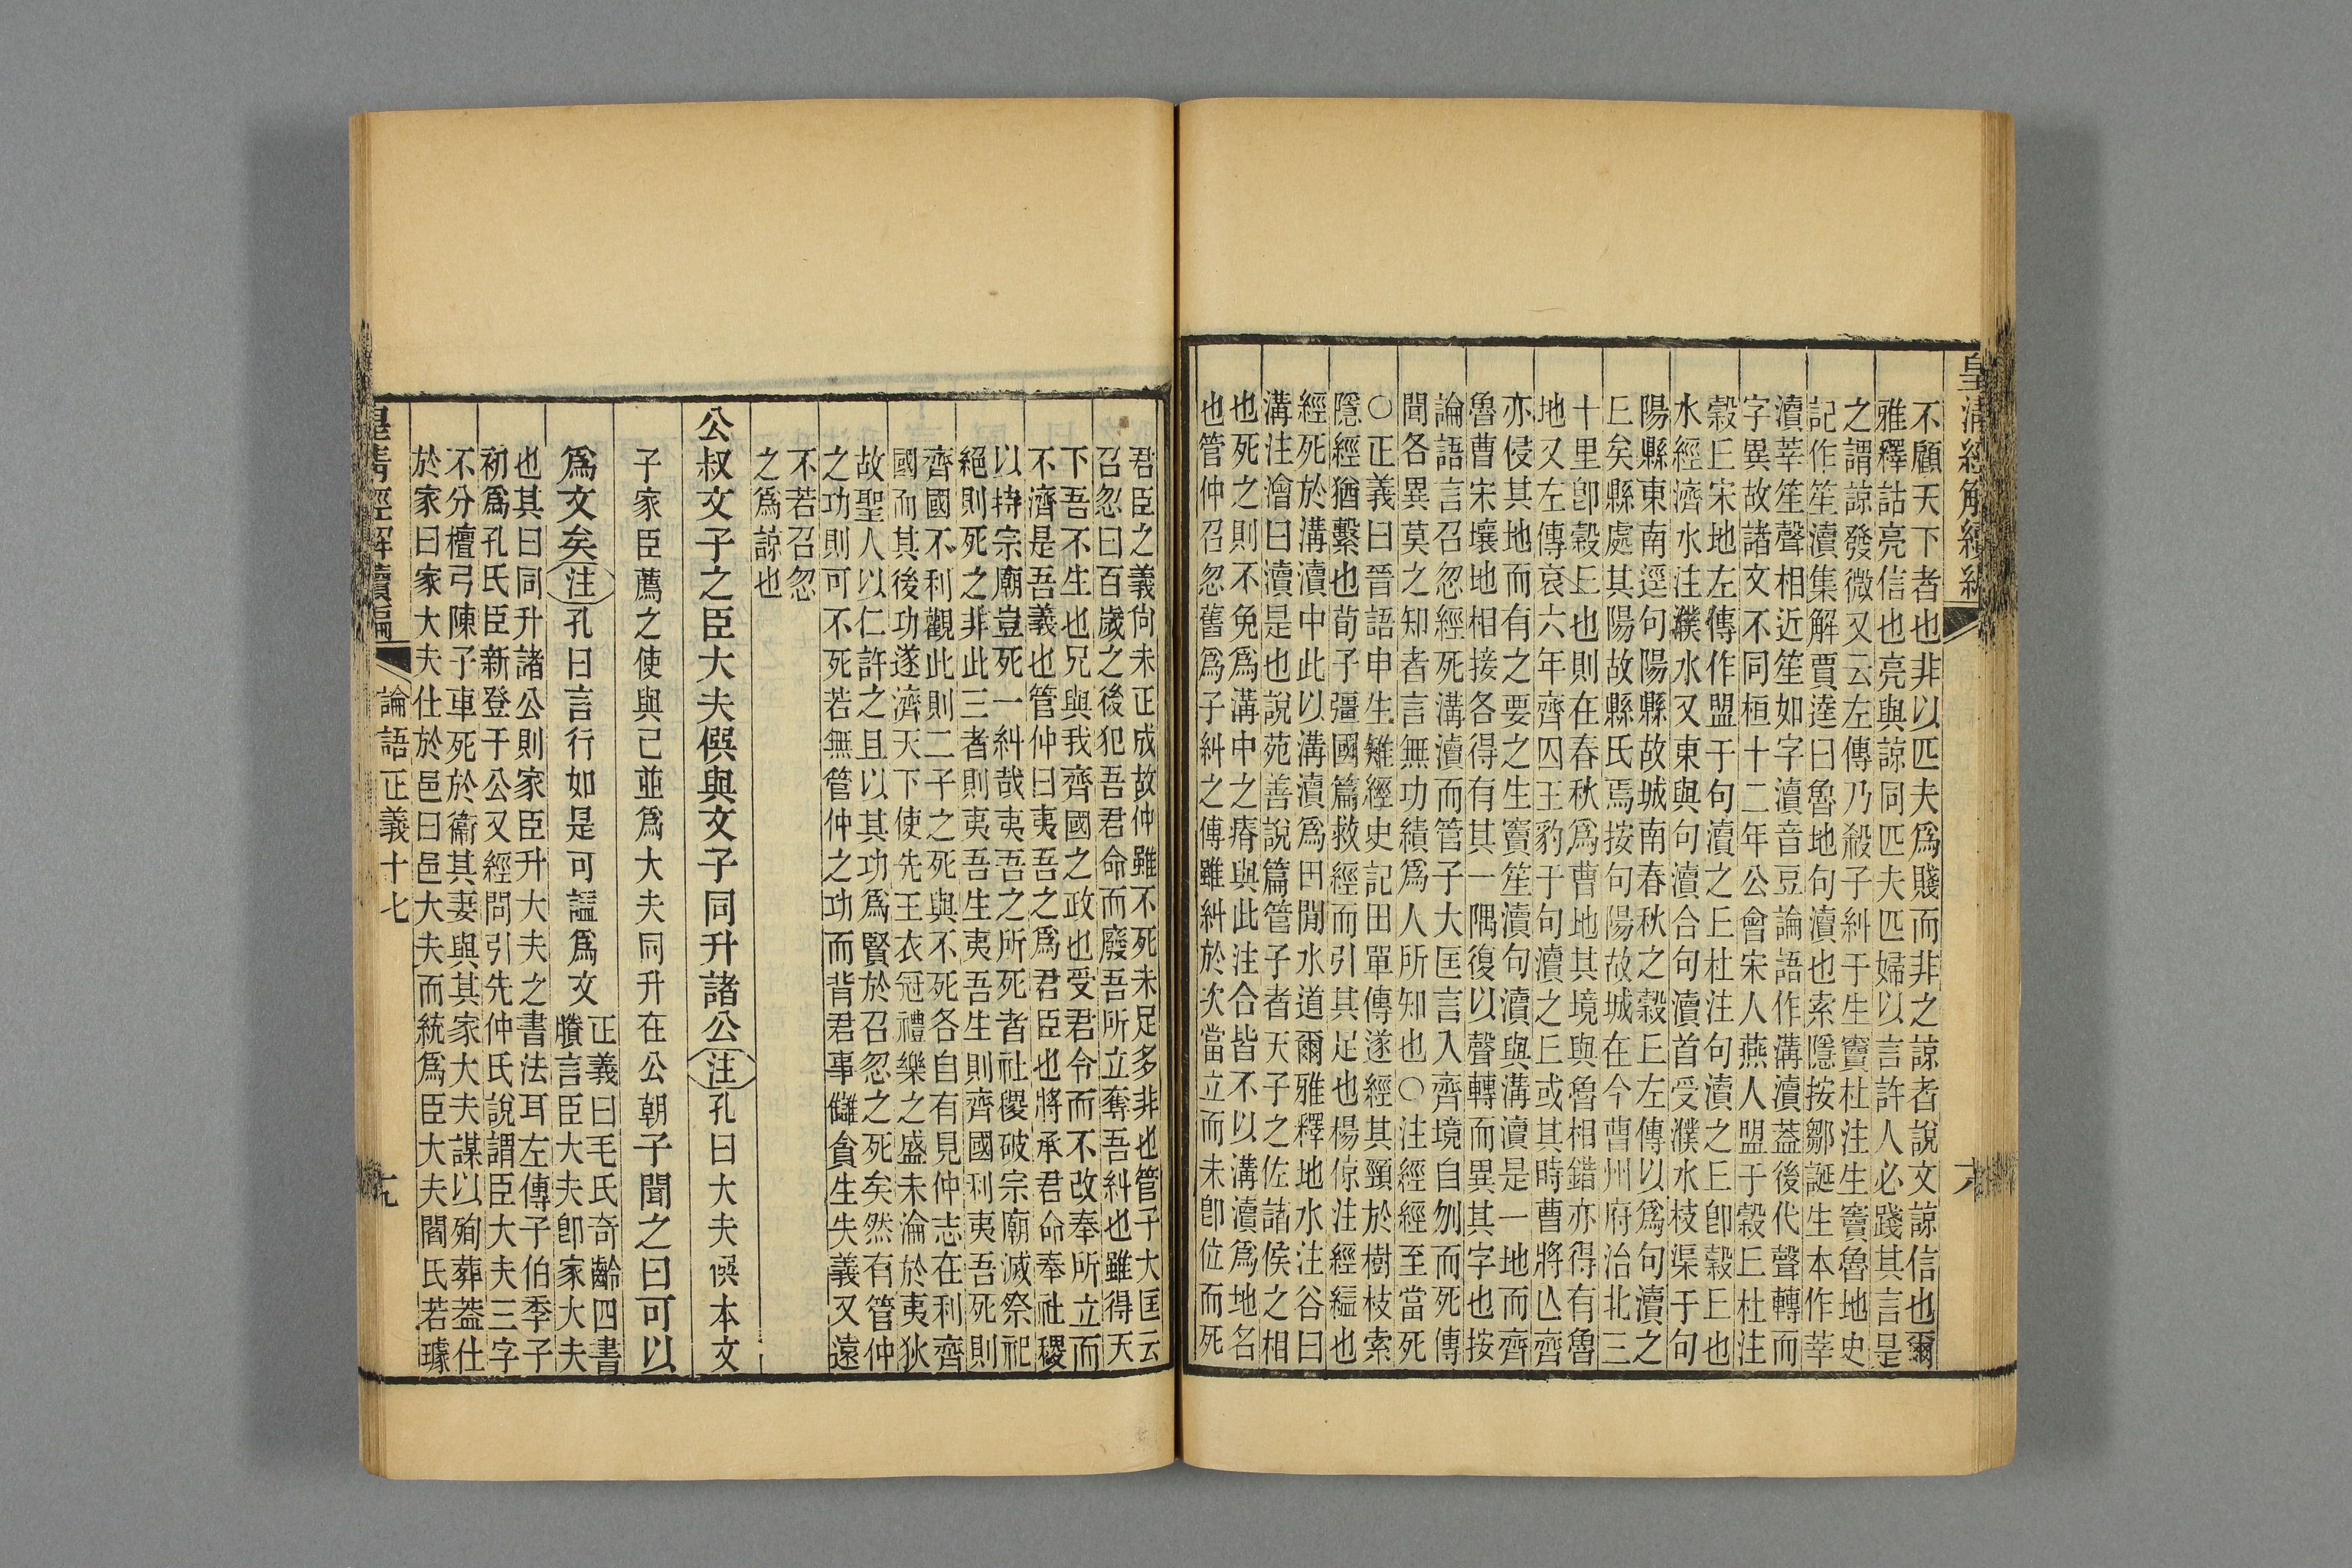 皇清經解續編
不顧天下者也非以匹夫爲賤而非之諒者說文諒信也爾
雅釋詁亮信也亮與諒同匹夫匹婦以言許人必踐其言是
之謂諒發微又云左傳乃殺子糾于生竇杜注生竇魯地史
記作笙瀆集解賈逵曰魯地句瀆也索隱按鄒誕生本作莘
瀆莘笙聲相近笙如字瀆音豆論語作溝瀆葢後代聲轉而
字異故諸文不同桓十二年公會宋人燕人盟于穀𠀉杜注
穀𠀉宋地左傳作盟于句瀆之𠀉杜注句瀆之𠀉卽穀𠀉也
水經濟水注濮水又東與句瀆合句瀆首受濮水枝渠于句
陽縣東南逕句陽縣故城南春秋之穀𠀉左傳以爲句瀆之
𠀉矣縣處其陽故縣氏焉按句陽故城在今曹州府治北三
十里卽穀𠀉也則在春秋爲曹地其境與魯相錯亦得有魯
地又左傳哀六年齊囚王豹于句瀆之𠀉或其時曹將亾齊
亦侵其地而有之要之生竇笙瀆句瀆與溝瀆是一地而齊
魯曹宋壤地相接各得有其一隅復以聲轉而異其字也按
論語言召忽經死溝瀆而管子大匡言入齊境自刎而死傳
聞各異莫之知者言無功績爲人所知也○注經經至當死
○正義曰晉語申生雉經史記田單傳遂經其頸於樹枝索
隱經猶繫也荀子彊國篇救經而引其足也楊倞注經縊也
經死於溝瀆中此以溝瀆爲田閒水道爾雅釋地水注谷曰
溝注澮曰瀆是也說苑善說篇管子者天子之佐諸侯之相
也死之則不免爲溝中之瘠與此注合皆不以溝瀆爲地名
也管仲召忽舊爲子糾之傅雖糾於次當立而未卽位而死
君臣之義尙未正成故仲雖不死未足多非也管子大匡云
召忽曰百歲之後犯吾君命而廢吾所立奪吾糾也雖得天
下吾不生也兄與我齊國之政也受君令而不改奉所立而
不濟是吾義也管仲曰夷吾之爲君臣也將承君命奉社稷
以持宗廟豈死一糾哉夷吾之所死者社稷破宗廟滅祭祀
絕則死之非此三者則夷吾生夷吾生則齊國利夷吾死則
齊國不利觀此則二子之死與不死各自有見仲志在利齊
國而其後功遂濟天下使先王衣冠禮樂之盛未淪於夷狄
故聖人以仁許之且以其功爲賢於召忽之死矣然有管仲
之功則可不死若無管仲之功而背君事讎貪生失義又遠
不若召忽
之爲諒也
公叔文子之臣大夫僎與文子同升諸公注孔曰大夫僎本文
子家臣薦之使與己並爲大夫同升在公朝子聞之曰可以
爲文矣注孔曰言行如是可謚爲文
正義曰毛氏奇齡四書
賸言臣大夫卽家大夫
也其曰同升諸公則家臣升大夫之書法耳左傳子伯季子
初爲孔氏臣新登于公又經問引先仲氏說謂臣大夫三字
不分檀弓陳子車死於衞其妻與其家大夫謀以殉葬葢仕
於家曰家大夫仕於邑曰邑大夫而統爲臣大夫閻氏若璩
皇淸經解續編
論語正義十七